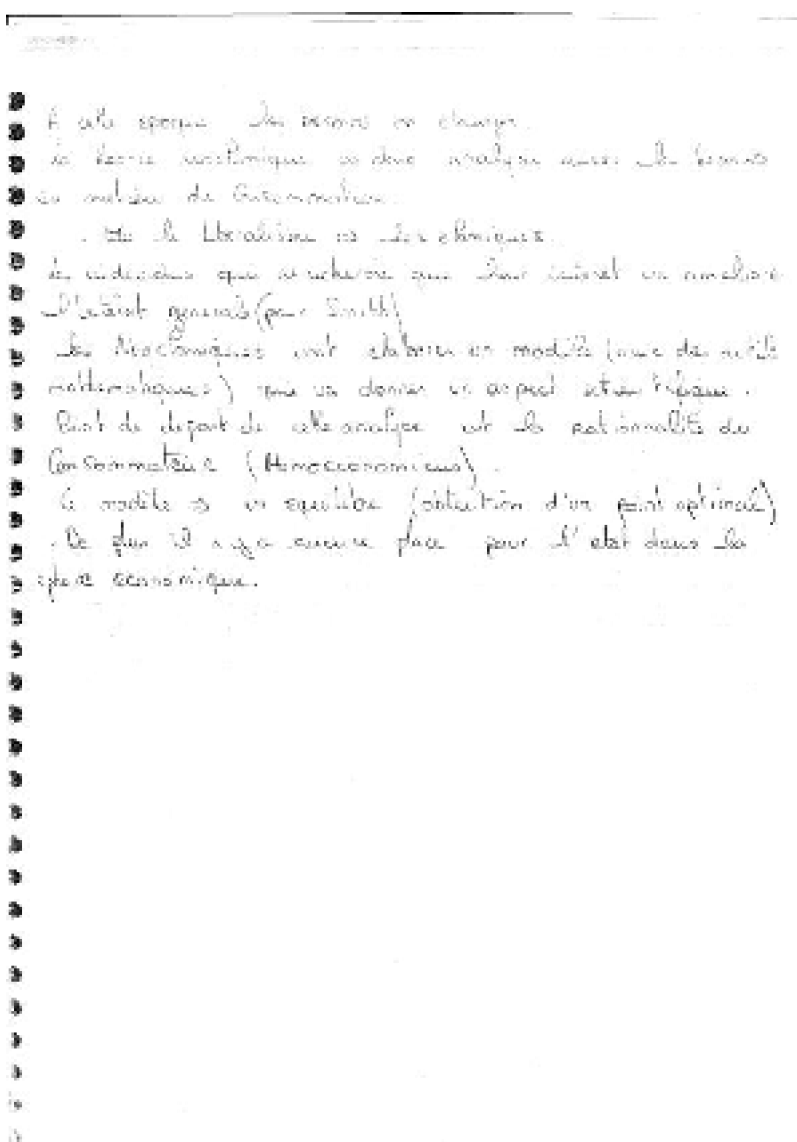 A cette epoque les besoins on changer.
la theorie neoclassique va donc analyser aussi les besoins
en matière de Consommation.
le Liberalisme
les individus qui recherche que leur interet va ameliore
l'interet generale (pour Smith)
Les Neoclassiques vont elaborer un modèle (avec des outils
mathematiques) qui va donner un aspect scientifique.
Point de depart de cette analyse est la rationnalité du
Consommateur (Homoeconomicus).
Ce modèle → un equilibre (obtention d'un point optimal)
De plus il n y a aucune place pour l'etat dans la
sphere economique.